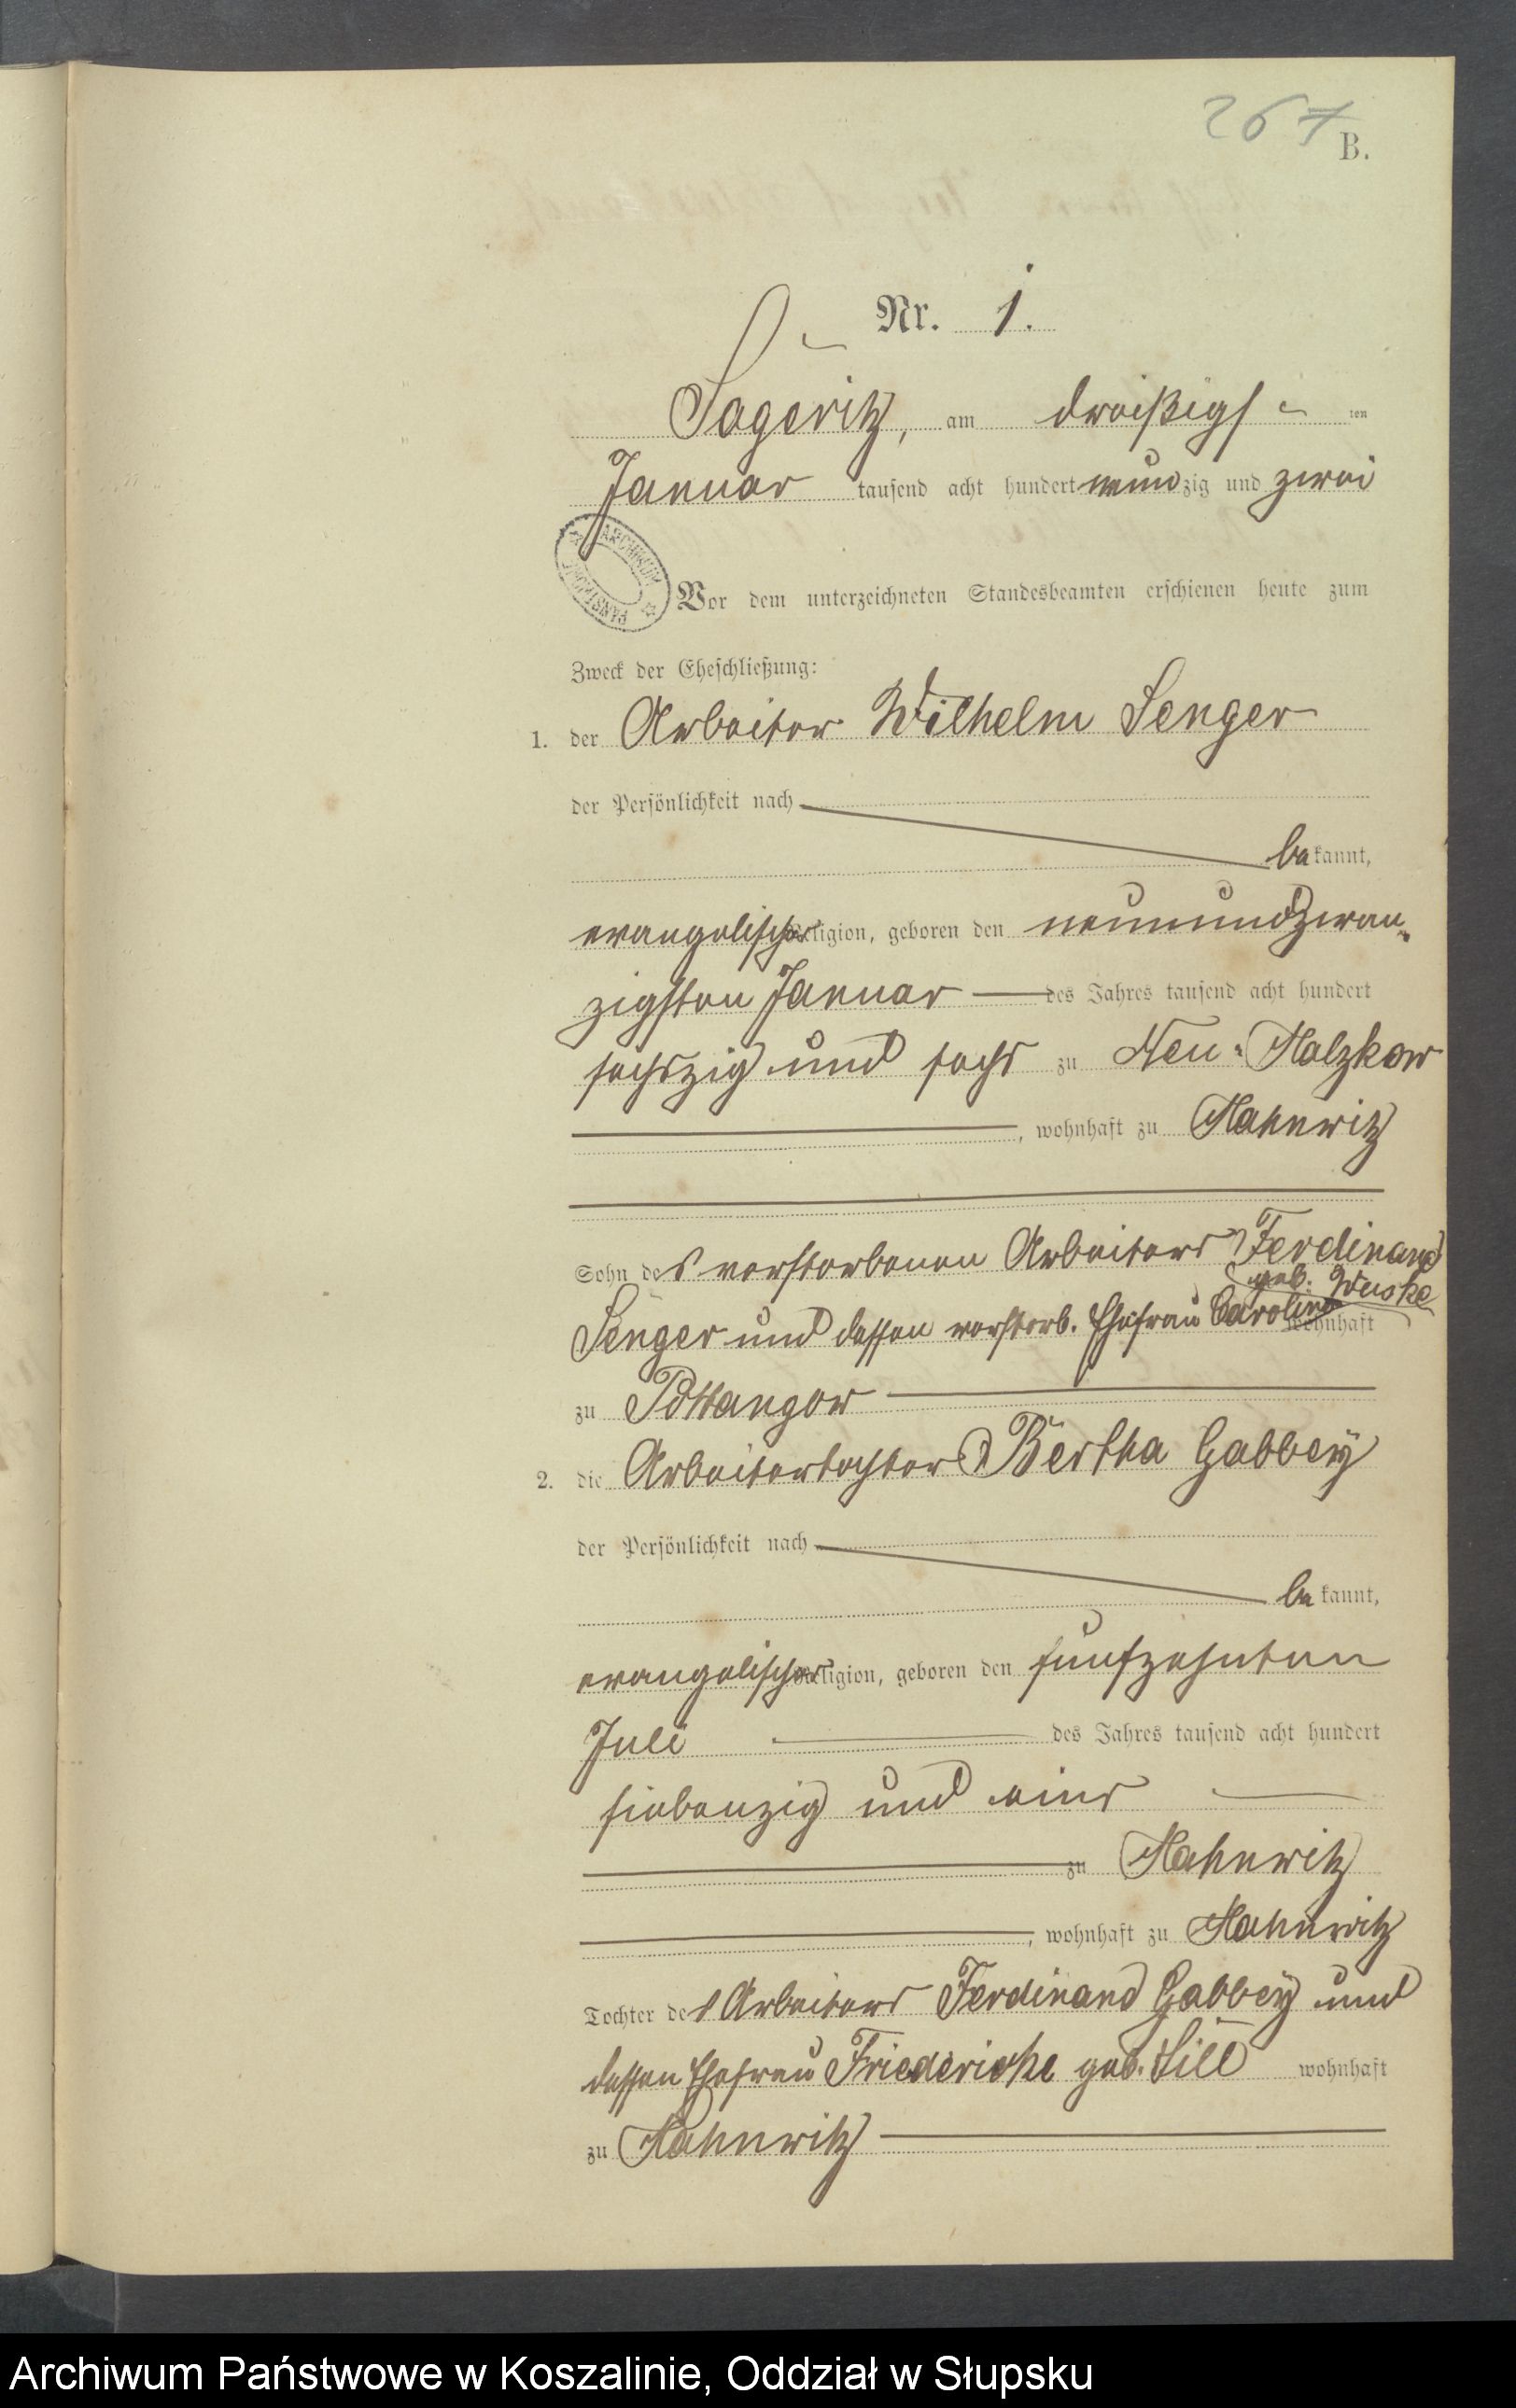 267
B.
Nr. 1.
Sageritz, am dreißigsten
Januar tausend acht hundert neunzig und zwei
ARCHIWUM PAŃSTWOWE
Vor dem unterzeichneten Standesbeamten erschienen heute zum
Zweck der Eheschließung:
1. der Arbeiter Wilhelm Senger
der Persönlichkeit nach
bekannt,
evangelischer Religion, geboren den neunundzwan-
zigsten Januar des Jahres tausend acht hundert
sechszig und sechs zu Neu-Malzkow
, wohnhaft zu Mahnwitz
Sohn des verstorbenen Arbeiters Ferdinand
geb. Wuske
Senger und dessen verstorb. Ehefrau Caroline wohnhaft
zu Pottangow
2. die Arbeitertochter Bertha Gabbey
der Persönlichkeit nach
bekannt,
evangelischer Religion, geboren den fünfzehnten
Juli des Jahres tausend acht hundert
siebenzig und eins
zu Mahnwitz
, wohnhaft zu Mahnwitz
Tochter des Arbeiters Ferdinand Gabbey und
dessen Ehefrau Friedericke geb. Sill wohnhaft
zu Mahnwitz
Archiwum Państwowe w Koszalinie, Oddział w Słupsku